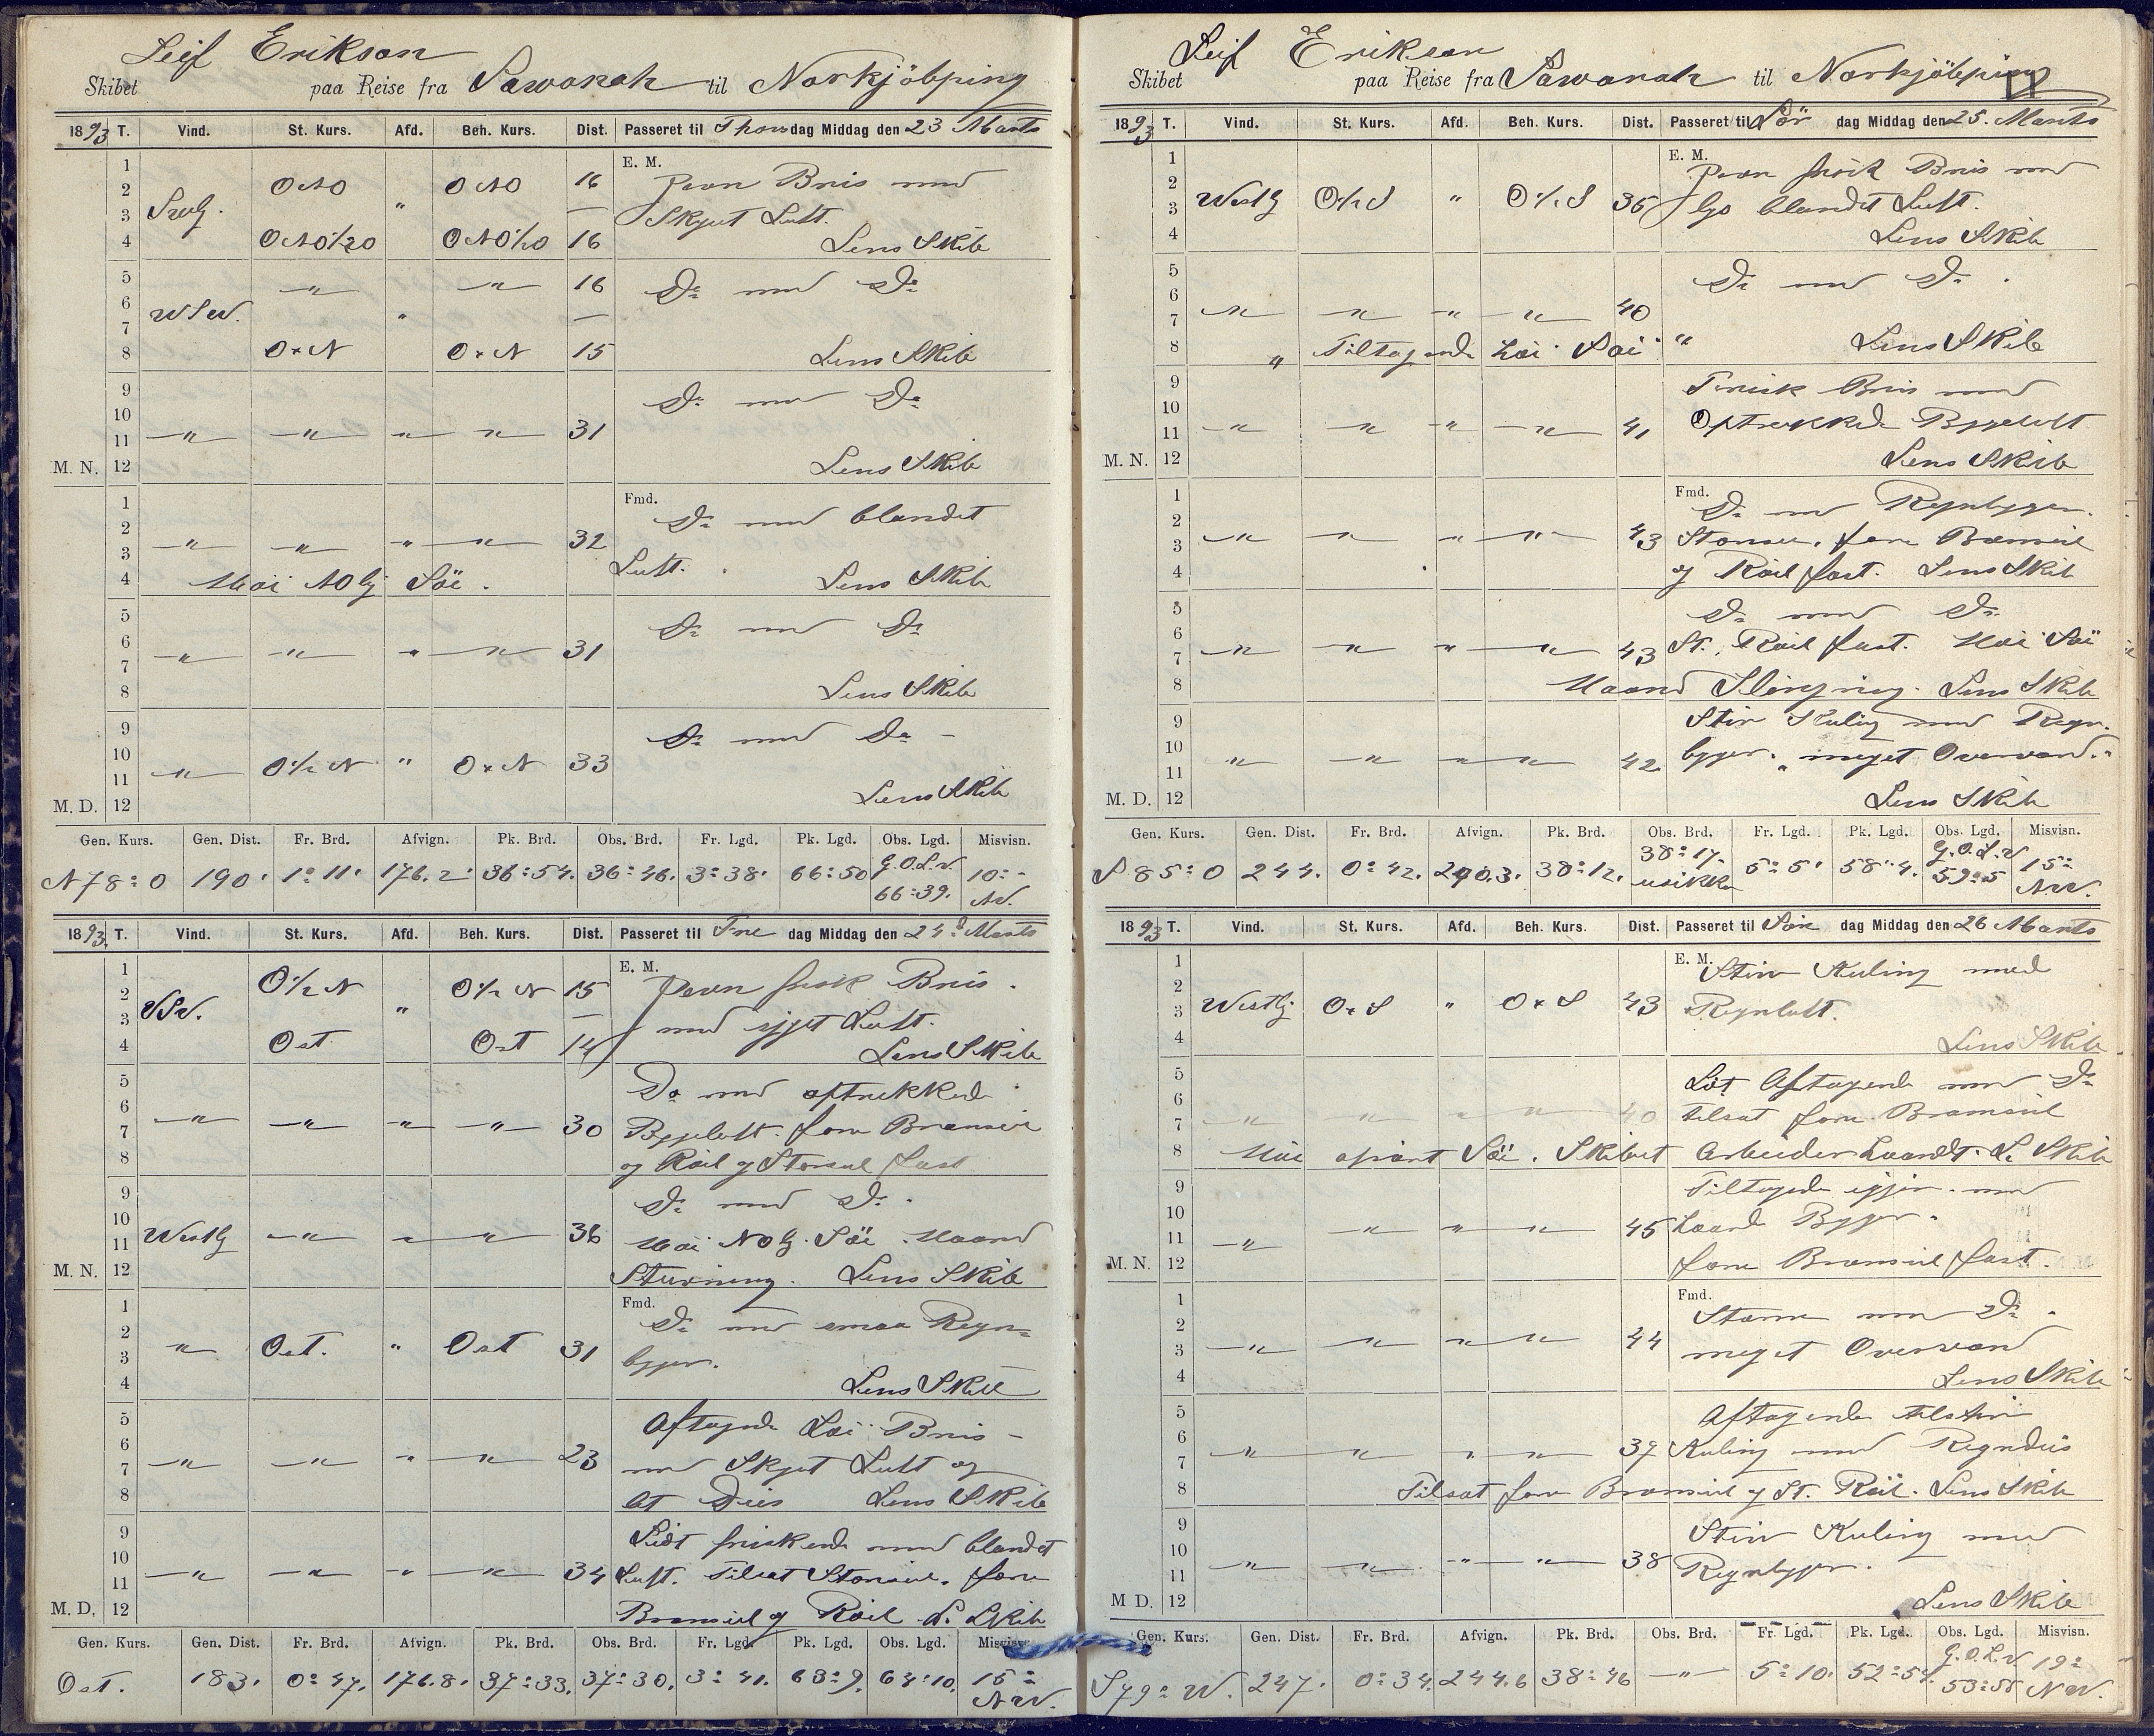 Leif Erikson
Skibet paa Reise fra Sawanah til Norkjöbping
1893 T. Vind. St. Kurs. Afd. Beh. Kurs. Dist. Passeret til Thors dag Middag den 23 Marts
E. M.
1
2 ONO " ONO 16 Pæn Bris med
3 Svlg. — Skyet Luft.
4 ONO½O ONO½O 16 Lens Skib
5 " " 16 Do med Do
6 WSW. " —
7
8 O x N O x N 15 Lens Skib
9 Do med Do
10
11 " " " " 31
M. N. 12 Lens Skib
Fmd.
1 Do med blandet
2
3 " " " " 32 Luft.
4 Höi NOlg Söe. Lens Skib
5 Do med Do
6
7 " " " " 31
8 Lens Skib
9 Do med Do
10 " O½N " O x N 33
11
M. D. 12 Lens Skib
Gen. Kurs. Gen. Dist. Fr. Brd. Afvign. Pk. Brd. Obs. Brd. Fr. Lgd. Pk. Lgd. Obs. Lgd. Misvisn.
G.O.L.V
N78°O 190' 1°11' 176.2' 36°54. 36°46. 3°38' 66°50 66°39. 10°- NV.
1893. T. Vind. St. Kurs. Afd. Beh. Kurs. Dist. Passeret til Fre dag Middag den 24d Marts
E. M.
1 O½N O½N 15 Pæn frisk Bris.
2
3 VSV. " — med skyet Luft.
4 Ost Ost 14 Lens Skib
5 Do med optrukked
6
7 " " " " 30 Bygeluft. fore Bramseil
8 og Röil og Storseil fast
9 Do med Do.
10
11 Westlg " " " 36 Höi NOlg. Söe. Haard
M. N. 12 Sturning. Lens Skib
Fmd.
1 Do med smaa Regn-
2 " Ost. " Ost 31
3 byger.
4 Lens Skib
5 Aftagende Löi Bris
6
7 " " " " 23 med Skyet Luft og
8 Lens Skib
9 Lidt friskende med blandet
10
11 " " " " 34 Luft. Tilsat Storseil. fore
M. D. 12 Bramseil og Röil. L. Skib
Gen. Kurs. Gen. Dist. Fr. Brd. Afvign. Pk. Brd. Obs. Brd. Fr. Lgd. Pk. Lgd. Obs. Lgd. Misvisn.
Ost. 183. 0°47. 176.8. 37°33. 37°30. 3°41. 63°9. 64°10. 15° NW.
Leif Erikson
Skibet paa Reise fra Sawanah til Norkjöbping
1893 T. Vind. St. Kurs. Afd. Beh. Kurs. Dist. Passeret til Lör dag Middag den 25. Marts
E. M.
1 Pæn frisk Bris med
2
3 Westlg O½S " O½S 36 lys blandet Luft.
4 Lens Skib
5 Do med Do.
6
7 " " " " 40
8 " Tiltagende höi Söi " Lens Skib
9 Frisk Bris med
10
11 " " " " 41 Optrukkede Bygeluft
M. N. 12 Lens Skib
Fmd.
1 Do med Regnbyger.
2
3 " " " " 43 Storseil, fore Bramseil
4 og Röil fast. Lens Skib
5 Do med Do.
6
7 " " " " 43 St. Röil fast. Höi Söi
8 Haard Slingring. Lens Skib
9 Stiv Kuling med Regn-
10
11 " " " " 42 byger. meget Overvand.
M. D. 12 Lens Skib
Gen. Kurs. Gen. Dist. Fr. Brd. Afvign. Pk. Brd. Obs. Brd. Fr. Lgd. Pk. Lgd. Obs. Lgd. Misvisn.
38°17- G.O.L.V
S85°O 244. 0°42. 240.3. 38°12. usikker 5°5' 58°4. 59°5 15° NW.
1893 T. Vind. St. Kurs. Afd. Beh. Kurs. Dist. Passeret til Sön dag Middag den 26 Marts
E. M.
1 Stiv Kuling med
2
3 Westlg O x S " O x S 43 Regnluft.
4 Lens Skib
5 Lidt Aftagende med Do
6
7 " " " " 40 tilsat fore Bramseil
8 Höi Söi. Skibet Arbeider haardt. L. Skib
9 Tiltagende igjen. med
10
11 " " " " 45 haarde Byger.
M. N. 12 fore Bramseil fast.
Fmd.
1 Storm med Do.
2
3 " " " " 44 meget Overvand
4 Lens Skib
5 Aftagende til stiv
6
7 " " " " 39 Kuling med Regndis
8 Tilsat fore Bramseil og St. Röil. Lens Skib
9 Stiv Kuling med
10
11 " " " " 38 Regnbyger.
M D. 12 Lens Skib
Gen. Kurs. Gen. Dist. Fr. Brd. Afvign. Pk. Brd. Obs. Brd. Fr. Lgd. Pk. Lgd. Obs. Lgd. Misvisn.
G.O.L.V
S79°W. 247. 0°34. 244.6 38°46 " 5°10. 52°54. 53°58 19° NW.